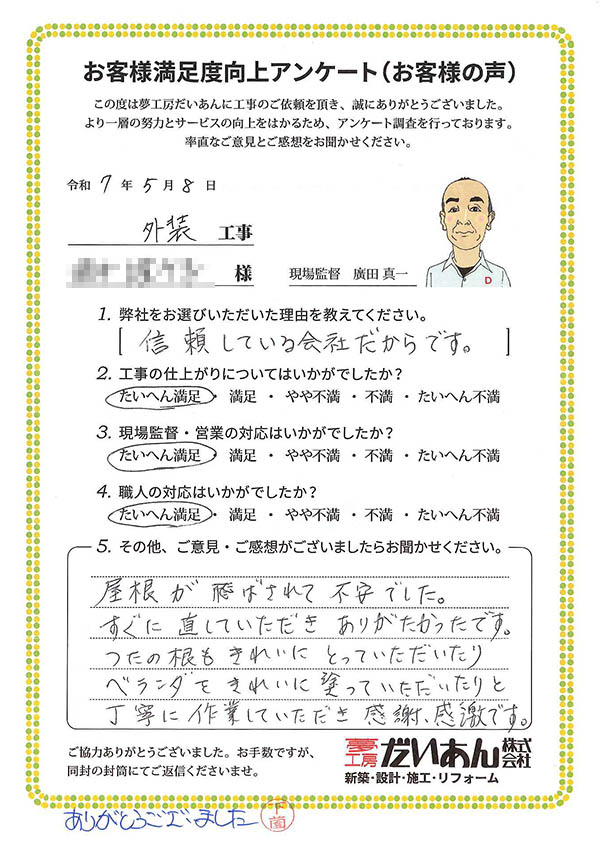 お客様満足度向上アンケート（お客様の声）
この度は夢工房だいあんに工事のご依頼を頂き、誠にありがとうございました。
より一層の努力とサービスの向上をはかるため、アンケート調査を行っております。
率直なご意見とご感想をお聞かせください。
令和 7 年 5 月 8 日
外装 工事
様
現場監督 廣田 真一
D
1. 弊社をお選びいただいた理由を教えてください。
[ 信頼している会社だからです。 ]
2. 工事の仕上がりについてはいかがでしたか？
たいへん満足 ・ 満足 ・ やや不満 ・ 不満 ・ たいへん不満
3. 現場監督・営業の対応はいかがでしたか？
たいへん満足 ・ 満足 ・ やや不満 ・ 不満 ・ たいへん不満
4. 職人の対応はいかがでしたか？
たいへん満足 ・ 満足 ・ やや不満 ・ 不満 ・ たいへん不満
5. その他、ご意見・ご感想がございましたらお聞かせください。
屋根が飛ばされて不安でした。
すぐに直していただきありがたかったです。
つたの根もきれいにとっていただいたり
ベランダをきれいに塗っていただいたりと
丁寧に作業していただき感謝、感激です。
ご協力ありがとうございました。お手数ですが、
同封の封筒にてご返信くださいませ。
夢工房 だいあん 株式会社
新築・設計・施工・リフォーム
ありがとうございました 下薗